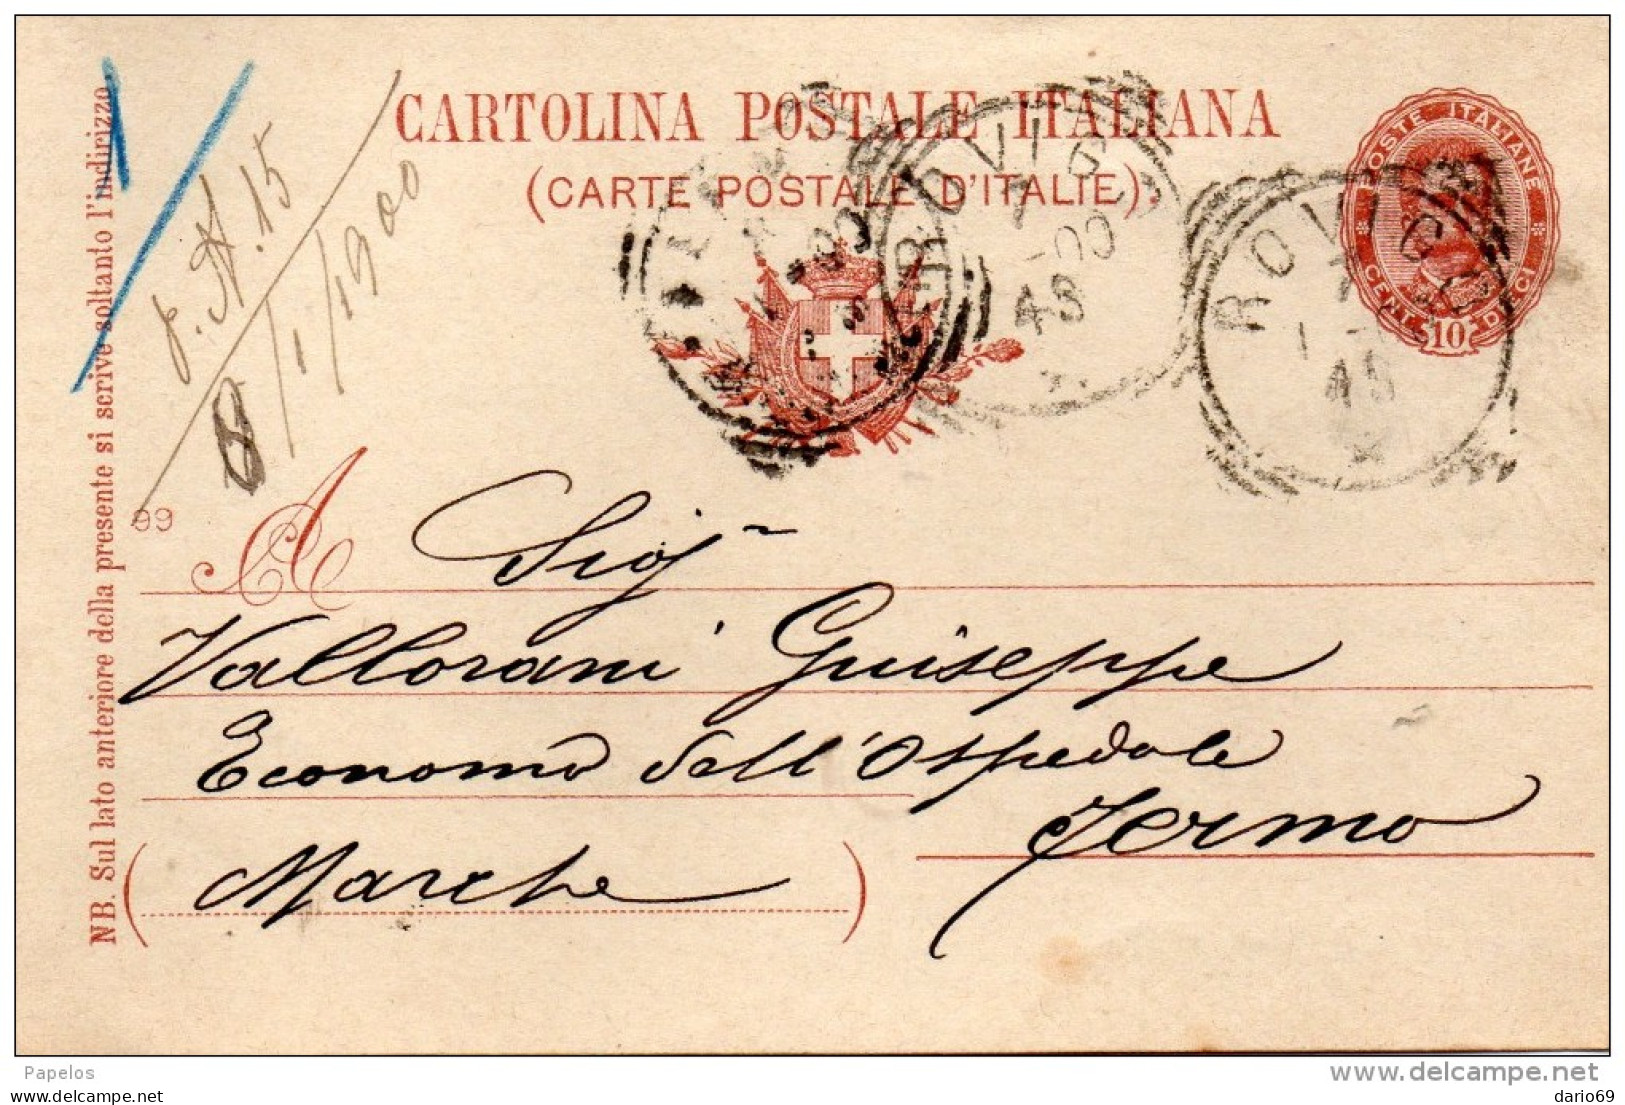 CARTOLINA POSTALE ITALIANA
(CARTE POSTALE D'ITALIE).
POSTE ITALIANE
CENT. 10 DIECI
ROVIGO
ROVIGO
NB. Sul lato anteriore della presente si scrive soltanto l'indirizzo
N. 15
8/1/1900
99
A Sigr
Vallorani Giuseppe
Economo dell'Ospedale
Fermo
(Marche)
Papelos
www.delcampe.net
dario69